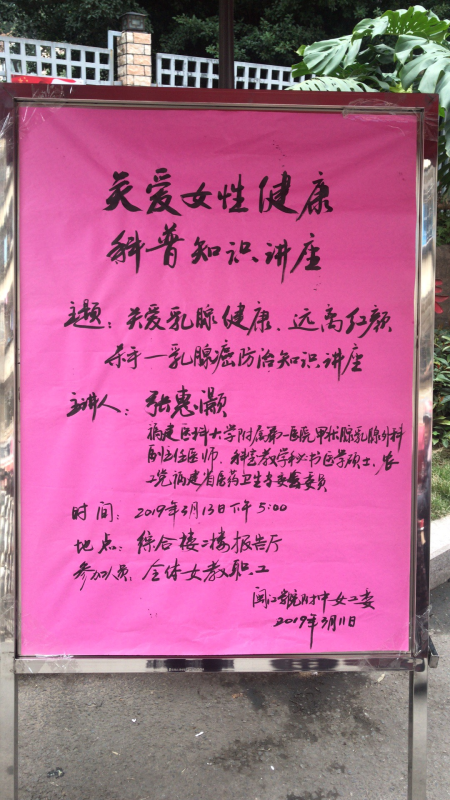 关爱女性健康
科普知识讲座
主题：关爱乳腺健康、远离红颜
杀手—乳腺癌防治知识讲座
主讲人：张惠灏
福建医科大学附属第一医院甲状腺乳腺外科
副主任医师、科室教学秘书医学硕士、农
工党福建省医药卫生专委会委员
时间：2019年3月13日下午5:00
地点：综合楼二楼报告厅
参加人员：全体女教职工
闽江学院附中女工委
2019年3月11日